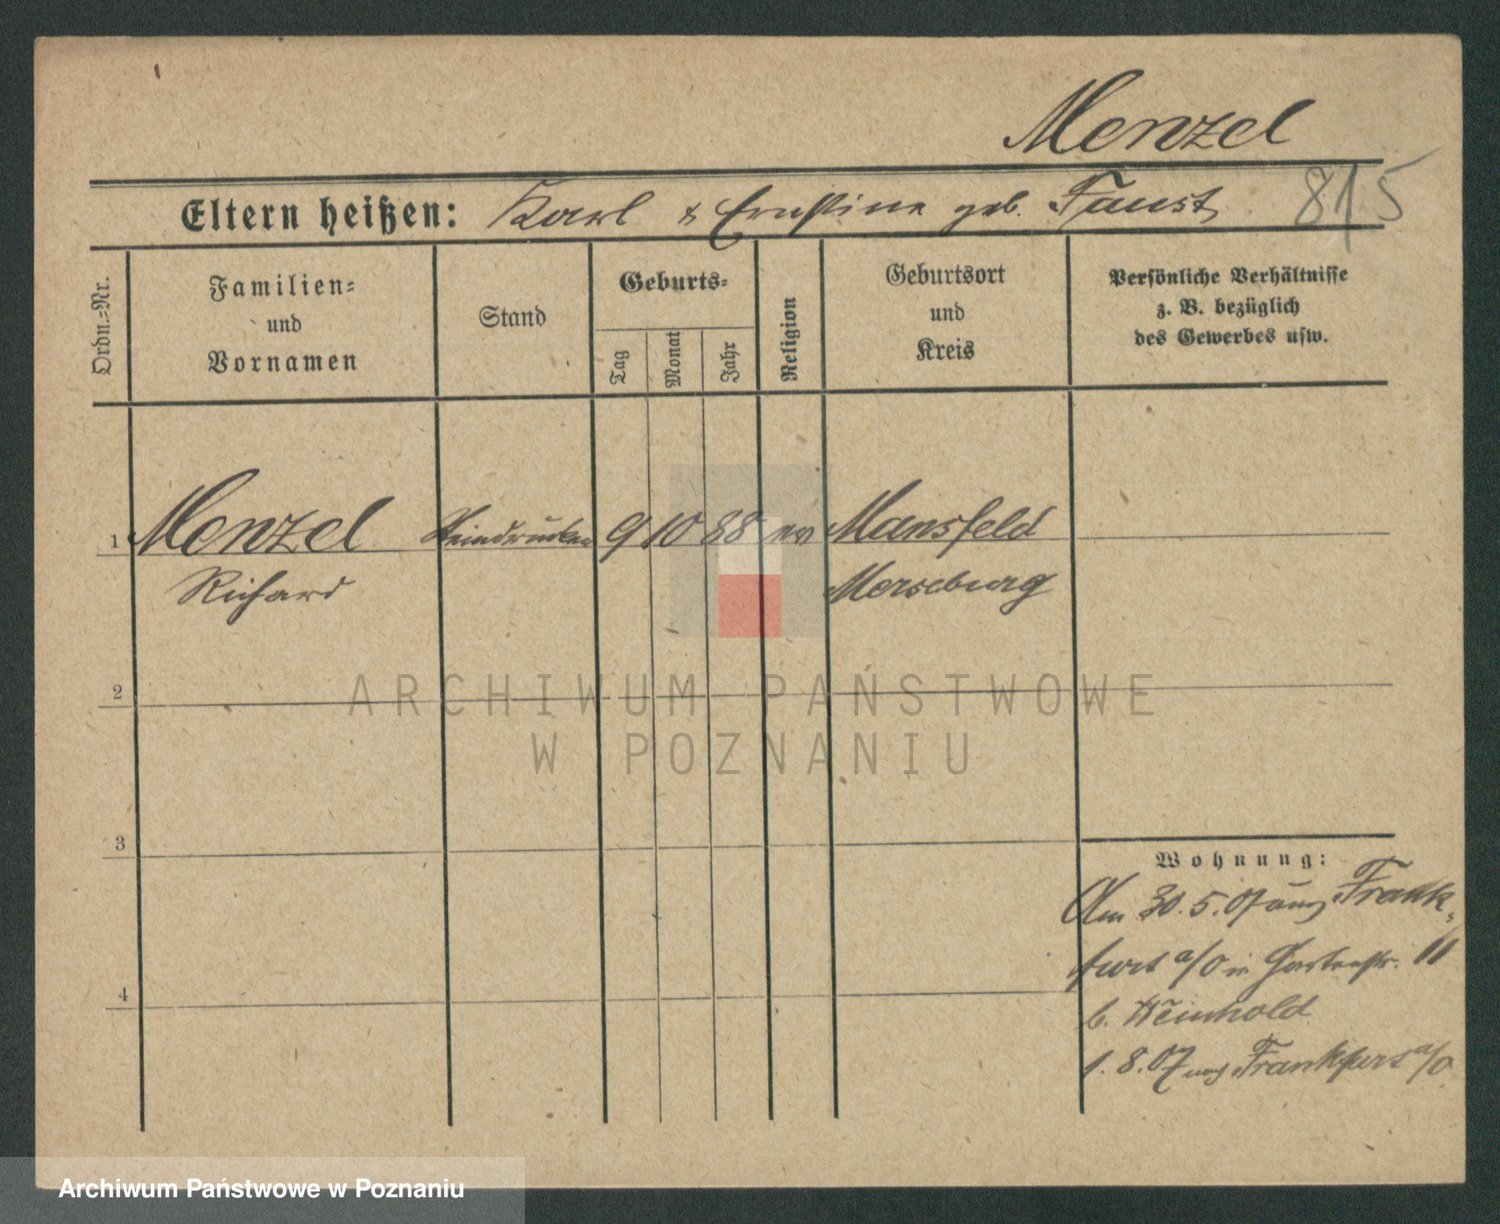 Menzel
Eltern heißen: Karl & Ernstine geb. Faust
815
Ordn.=Nr.
Familien=
und
Vornamen
Stand
Geburts=
Tag
Monat
Jahr
Religion
Geburtsort
und
Kreis
Persönliche Verhältnisse
z. B. bezüglich
des Gewerbes usw.
1 Menzel Steindrucker 9 10 88 ev Mansfeld
Richard Merseburg
2
3
4
Wohnung:
Am 30.5.07 Frank-
furt a/O in Gartenstr. 11
b. Weinhold
1.8.07 nach Frankfurt a/O
ARCHIWUM PAŃSTWOWE
W POZNANIU
Archiwum Państwowe w Poznaniu